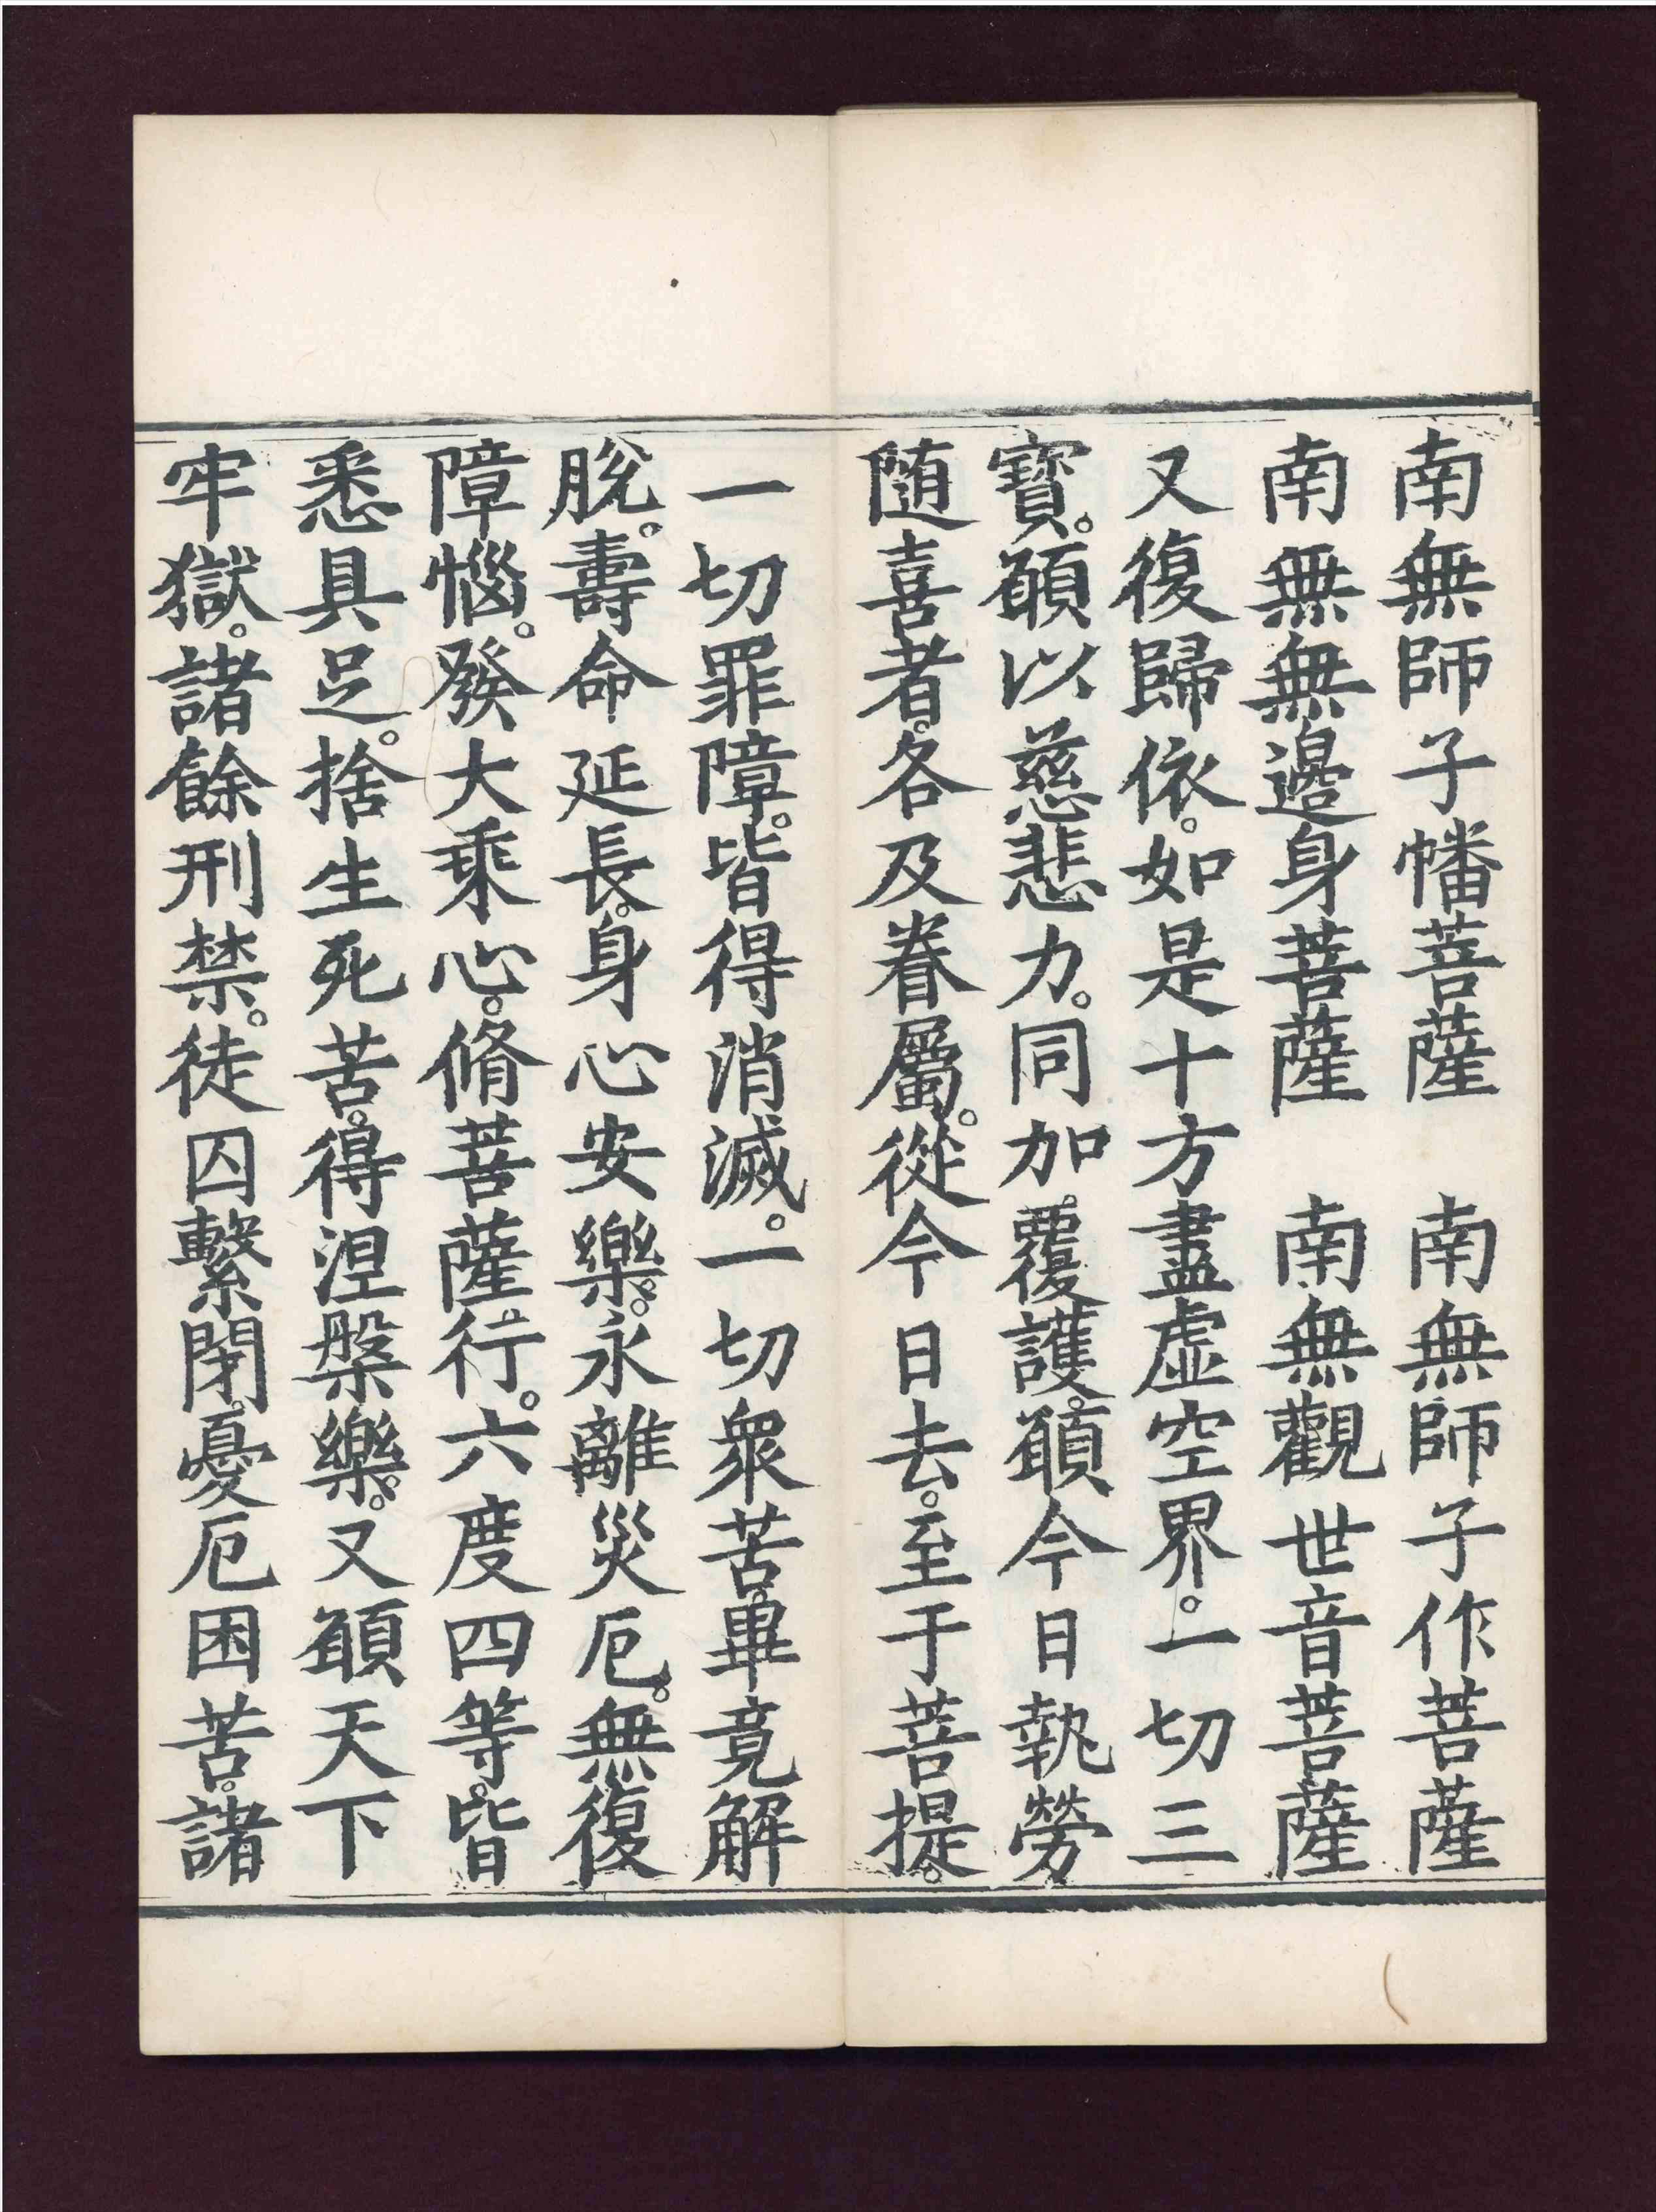 南無師子幡菩薩　南無師子作菩薩
南無無邊身菩薩　南無觀世音菩薩
又復歸依。如是十方盡虛空界。一切三
寶。願以慈悲力。同加。覆護。願今日執勞
随喜者。各及眷屬。從今日去。至于菩提。
一切罪障。皆得消滅。一切眾苦。畢竟解
脫。壽命延長。身心安樂。永離災厄。無復
障惱。發大乘心。脩菩薩行。六度四等。皆
悉具足。捨生死苦。得涅槃樂。又願天下
牢獄。諸餘刑禁。徒囚繫閉。憂厄困苦。諸